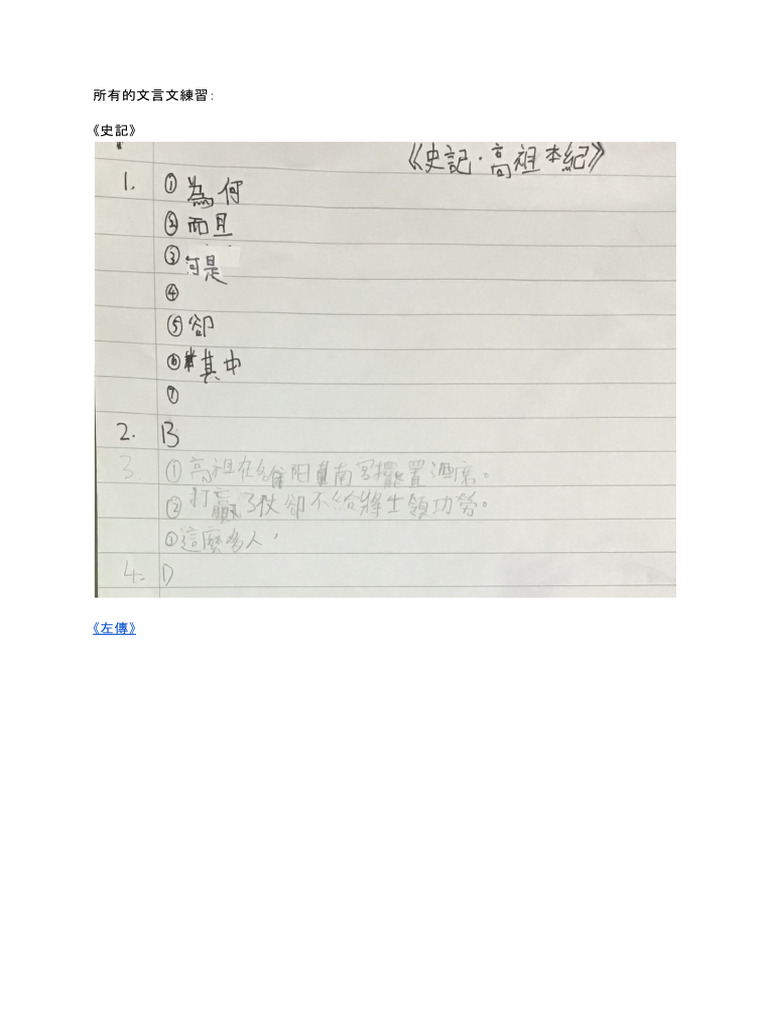 所有的文言文練習：
《史記》
《史記·高祖本紀》
1. ①為何
②而且
③可是
④
⑤卻
⑥其中
⑦
2. B
3 ①高祖在陽南宮擺置酒席。
②打贏了仗卻不給將士領功勞。
③這麼多人，
4. D
《左傳》